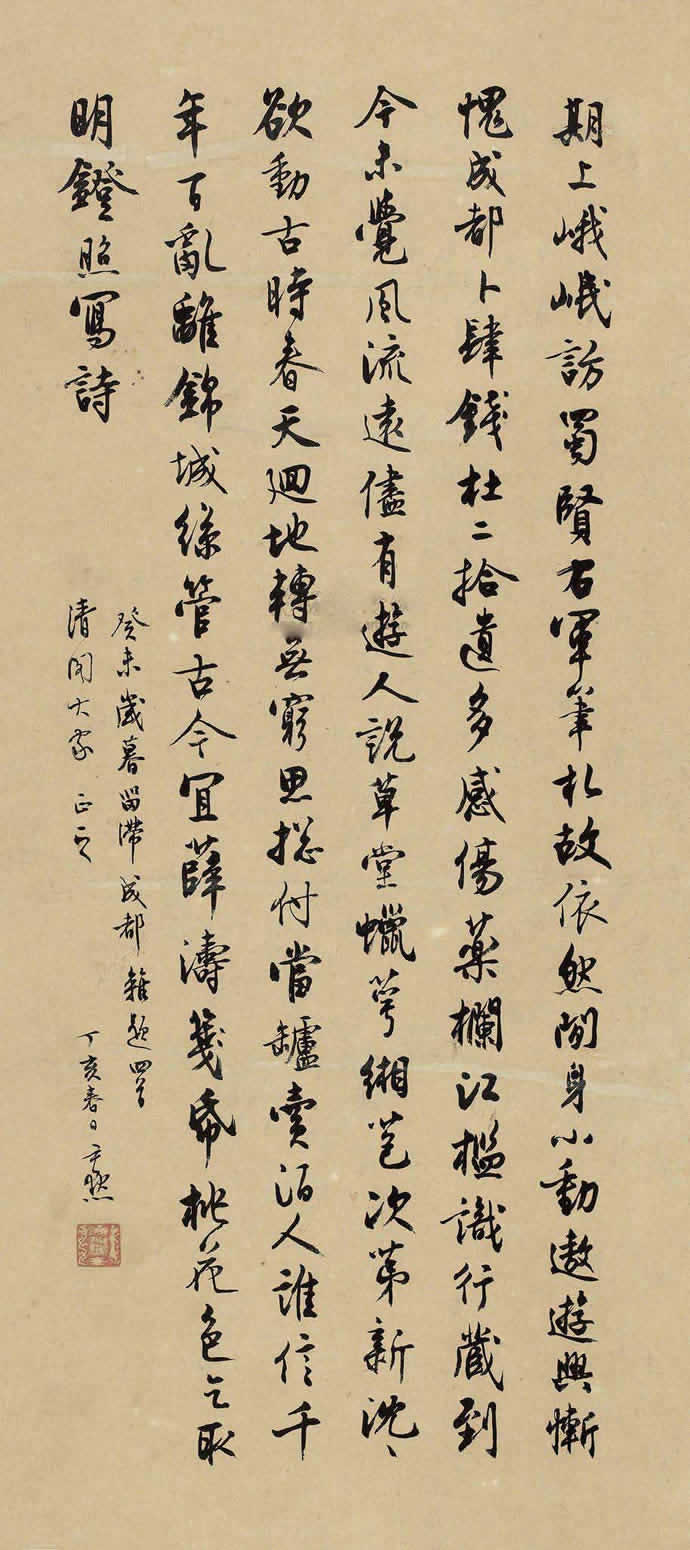 期上峨岷訪蜀賢右軍筆札故依然閒身小動遨遊興慚
愧成都卜肆錢杜二拾遺多感傷藥欄江檻識行藏到
今未覺風流遠儘有遊人說草堂蠟萼緗苞次第新沈沈
欲動古時春天迴地轉無窮思總付當罏賣酒人誰信千
年百亂離錦城絲管古今宜薛濤箋紙桃花色乞取
明鐙照寫詩
癸未歲暮留滯成都雜題四首
清閟大家正之
丁亥春日尹默